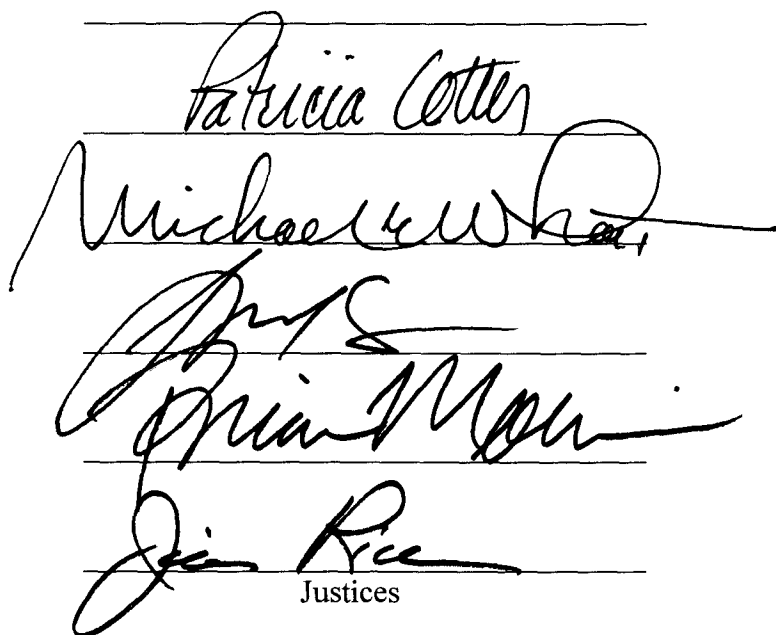 Patricia Cotter
Michael E Wheat
Brian Morris
Jim Rice
Justices